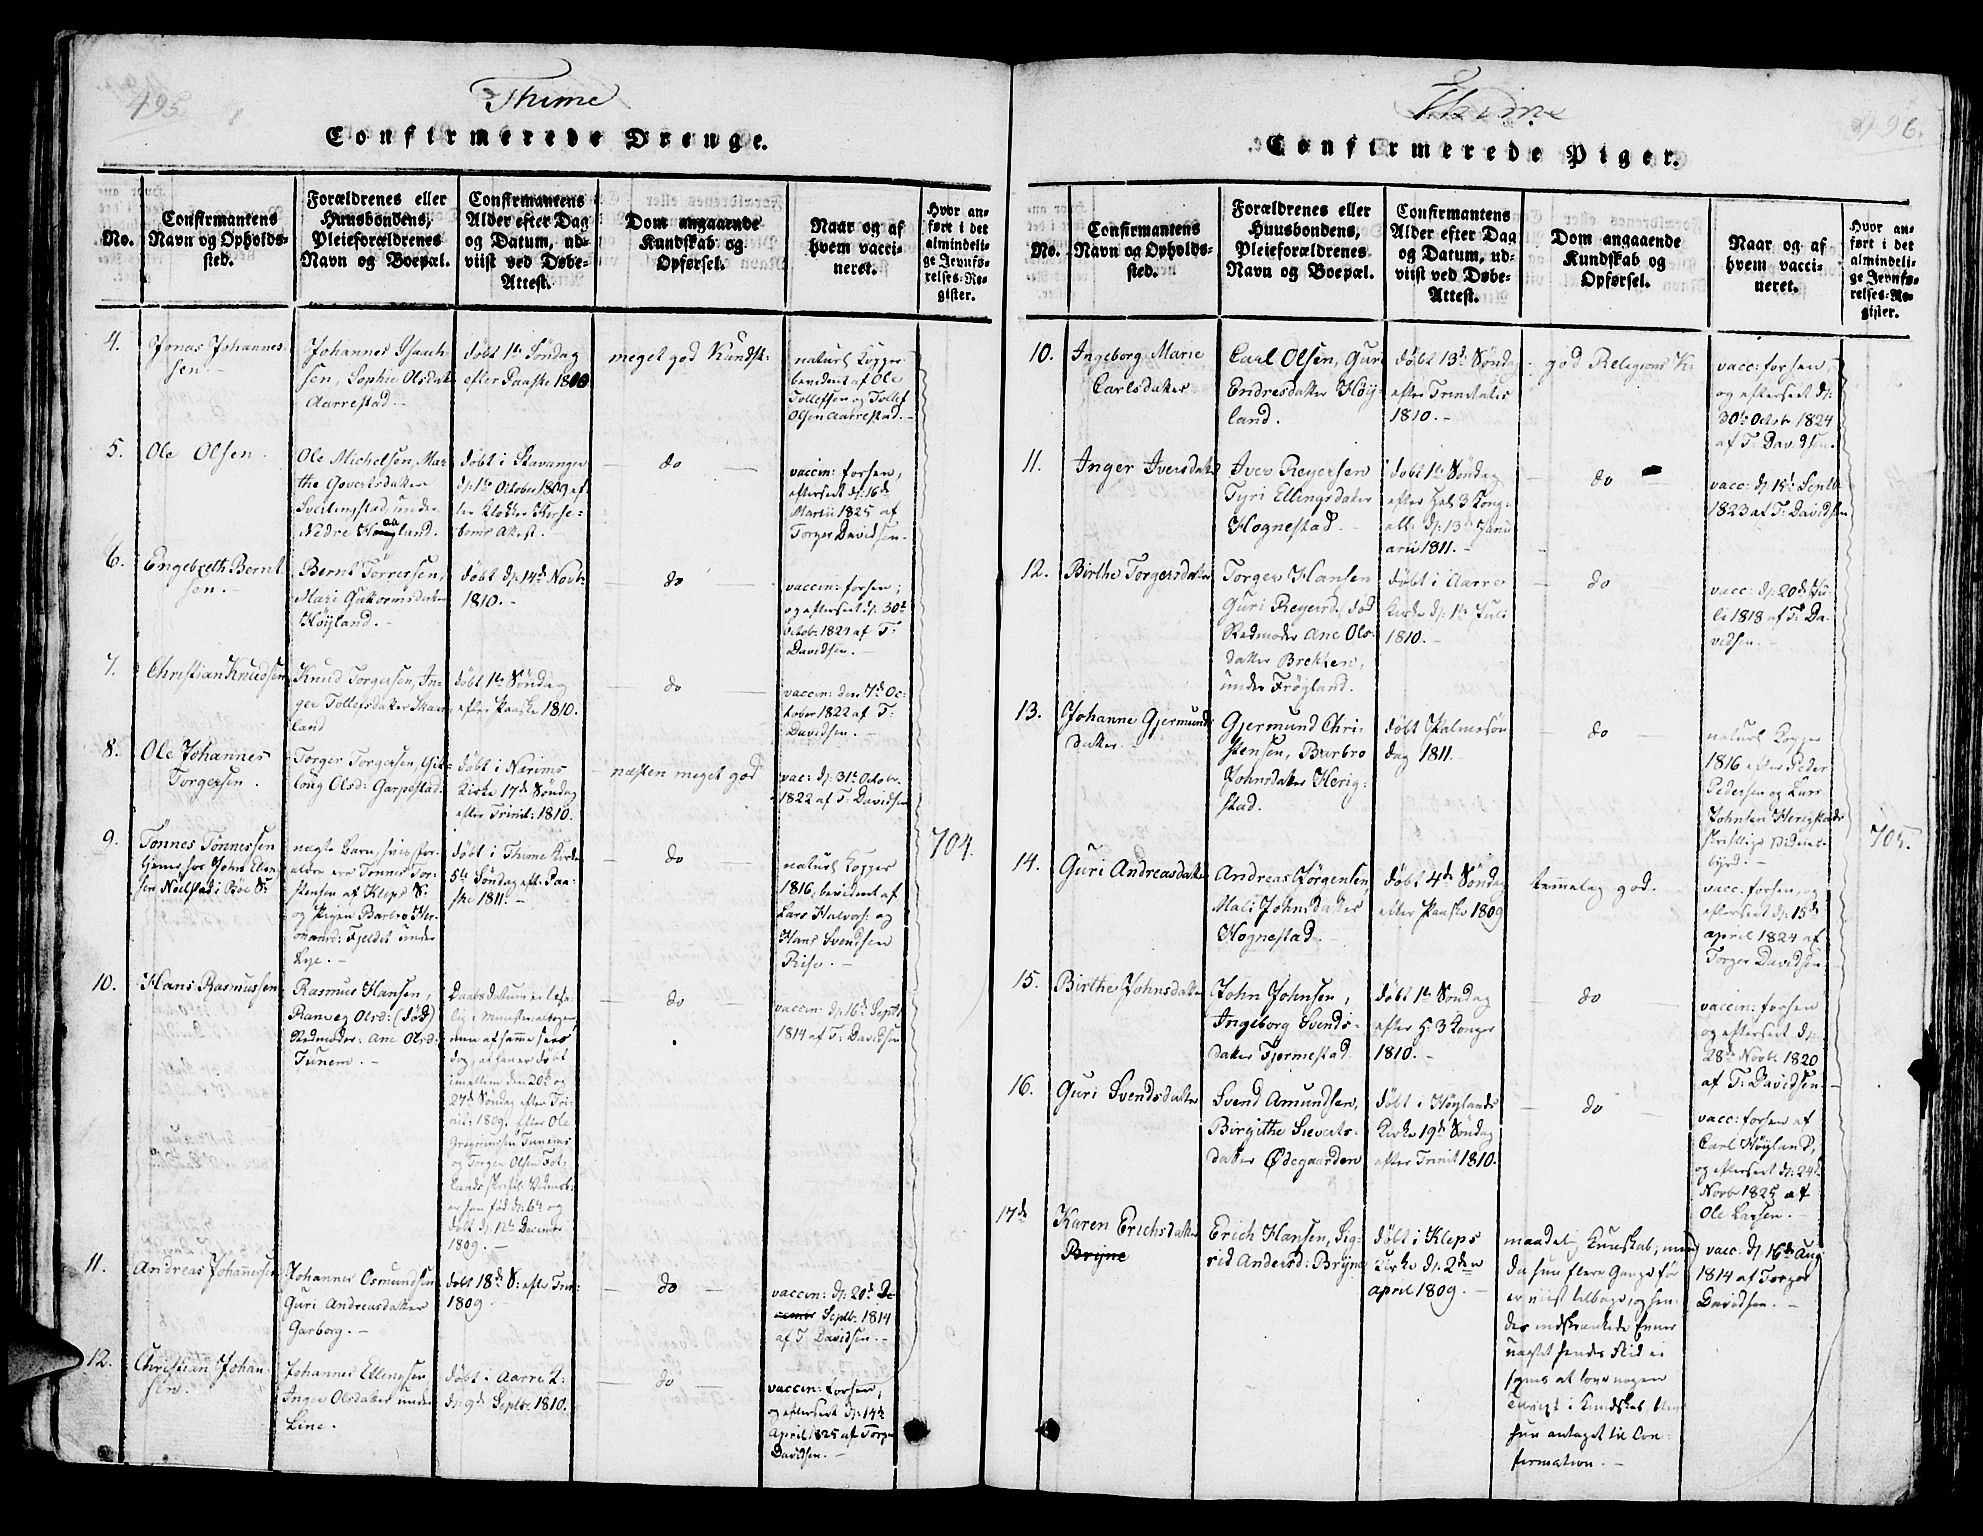 495.
Thime
Confirmerede Drenge.
No.
Confirmantens
Navn og Opholds-
sted.
Forældrenes eller
Huusbondens,
Pleieforældrenes
Navn og Boepæl.
Confirmantens
Alder efter Dag
og Datum, ud-
viist ved Døbe-
Attest.
Dom angaaende
Kundskab og
Opførsel.
Naar og af
hvem vacci-
neret.
Hvor an-
ført i det
almindeli-
ge Jevnfø-
relses-Re-
gister.
4.
Jonas Johannes
sen.
Johannes Isaach
sen, Sophie Olsdat
Aarrestad.
døbt 1te Søndag
efter Paaske 1810
meget god Kundsk:
naturl. Kopper
bevident af Ole
Tollefsen og Tollef
Olsen Aarrestad.
5.
Ole Olsen.
Ole Michelsen, Mar
the Govertsdatter
Svertingstad, under
Nedre Haaland.
døbt i Stavanger
d: 1te October 1809 ef-
ter Klokker Kirse-
boms Attest.
do
vaccin: forsen,
efterseet d: 16de
Martii 1825 af
Torger Davidsen.
6.
Engebreth Bernt
sen.
Bernt Torrersen,
Mari Guttormsdatter
Høyland.
døbt d: 14de Novb.
1810.
do
vaccin: forsen;
og efterseet d: 30te
Octob: 1824 af T:
Davidsen.
7.
Christian Knudsen
Knud Torgersen, In
ger Tollefsdatter Skav
land
døbt 1te Søndag
efter Paaske 1810.
do
vaccin: den 7de Oc-
tober 1822 af T:
Davidsen.
8.
Ole Johannes
Torgersen.
Torger Torgersen, Git-
long Olsd: Garpestad.
døbt i Nærims
Kirke 17de Søndag
efter Trinit: 1810.
næsten meget god
vac: d: 31te Octobr.
1822 af T: Davidsen
9.
Tønnes Tønnessen
tjener hos John Ellen
sen Nælstad i Bøe S:
uægte Barn, hvis for-
ældre ere Tønnes Tor-
stensen af Kleps S:
og Pigen Barbro Her-
mansd: Fjeldet under
Lye.
døbt i Thime Kirke
5te Søndag eft: Paa-
ske 1811.
do
naturl. Kopper
1816, bevident af
Lars Halvors: og
Hans Svendsen
Rise.
704.
10.
Hans Rasmussen
Rasmus Hansen,
Ranveg Olsd: (død)
Stedmoder: Ane Olsd:
Tunem.
Daabsdatum er ulæse-
lig i Ministerialbogen
men af samme sees
dog, at han er døbt
imellem den 20de og
27de Søndag efter Tri-
nit: 1809. efter Ole
Gregoriussen Tunems
og Torger Olsen Fot-
lands skriftl. Vidnesb:
er han fød d: 6te og
døbt d: 12te December
1809.
do
vaccin: d: 16de Septb:
1814 af T: Davidsen
11.
Andreas Johannesen
Johannes Osmundsen
Guri Andreasdatter
Garborg.
døbt 18de S: efter Trin:
1809.
do
vaccin: d: 20de De-
cembr Septb: 1814
af T: Davidsen.
12.
Christian Johan-
sen.
Johannes Ellingsen
Inger Olsdatter under
Line.
døbt i Aarre K:
d: 9de Septb: 1810.
do
vaccin: forsen,
og efterseet d: 14de
April 1825 af Torger
Davidsen.
496.
Thime
Confirmerede Piger.
No.
Confirmantens
Navn og Opholds-
sted.
Forældrenes eller
Huusbondens,
Pleieforældrenes
Navn og Boepæl.
Confirmantens
Alder efter Dag
og Datum, ud-
viist ved Døbe-
Attest.
Dom angaaende
Kundskab og
Opførsel.
Naar og af
hvem vacci-
neret.
Hvor an-
ført i det
almindeli-
ge Jevnfø-
relses-Re-
gister.
10.
Ingeborg Marie
Carlsdatter
Carl Olsen, Guri
Endresdatter Høy-
land.
døbt 13de Søndag
efter Trinitatis
1810.
god Religions K:
vacc: forsen,
og efterseet d:
30te Octob 1824
af T: Davidsen.
11.
Inger Iversdatter
Iver Reyersen
Tyri Ellingsdatter
Hognestad.
døbt 1te Søndag
efter Hel. 3 Kong:
all: d: 13de Janu
arii 1811.
do
vacc: d: 15de Septb
1823 af T: Davidsen
12.
Birthe Torgersdatter
Torger Hansen
Guri Reyersd. død
Stedmoder Ane Ols-
datter Brekken,
under Frøyland.
døbt i Aarre
Kirke d: 1te Juli
1810.
do
vacc: d: 20de Ju-
li 1818 af T: Da-
vidsen.
13.
Johanne Gjermunds
datter.
Gjermund Chri-
stensen, Barbro
Johnsdatter Herig-
stad.
døbt Palmesøn
dag 1811.
do
naturl. Kopper
1816 efter Peder
Pedersen og Lars
Johnsen Herigstads
skriftlige Vidnes-
byrd.
705.
14.
Guri Andreasdatter
Andreas Jørgensen
Mali Johnsdatter
Hognestad.
døbt 4de Søndag
efter Paaske 1809
temmelig god.
vacc. forsen, og
efterseet d: 15de
april 1824 af
Torger Davidsen.
15.
Birthe Johnsdatter
John Johnsen,
Ingeborg Svends-
datter Fjermestad
døbt 1te Søndag
efter H: 3 Konger
1810.
do
vaccin: forsen
og efterseet d:
28de Novb: 1820
af T: Davidsen.
16.
Guri Svendsdatter
Svend Amundsen,
Birgithe Sieverts-
datter Ødegaarden
døbt i Høylands
Kirke 19de Søndag
efter Trinit 1810.
do
vacc: forsen af
Carl Høyland,
og efterseet d: 24de
Novb 1825 af
Ole Larsen.
17de
Karen Erichsdatter
Bryne
Erich Hansen, Sig-
rid Andersd: Bryne
døbt i Kleps
Kirke d: 2den
april 1809.
maadelig Kundskab, men
da hun flere Gange før
er viist tilbage, og hen-
des indskrænkede Evner
uagtet hendes Flid ei
synes at love nogen
Tilvext i Kundskab blev
hun antaget til Con-
firmation.
vacc. d: 16de Aug
1814 af Torger
Davidsen.